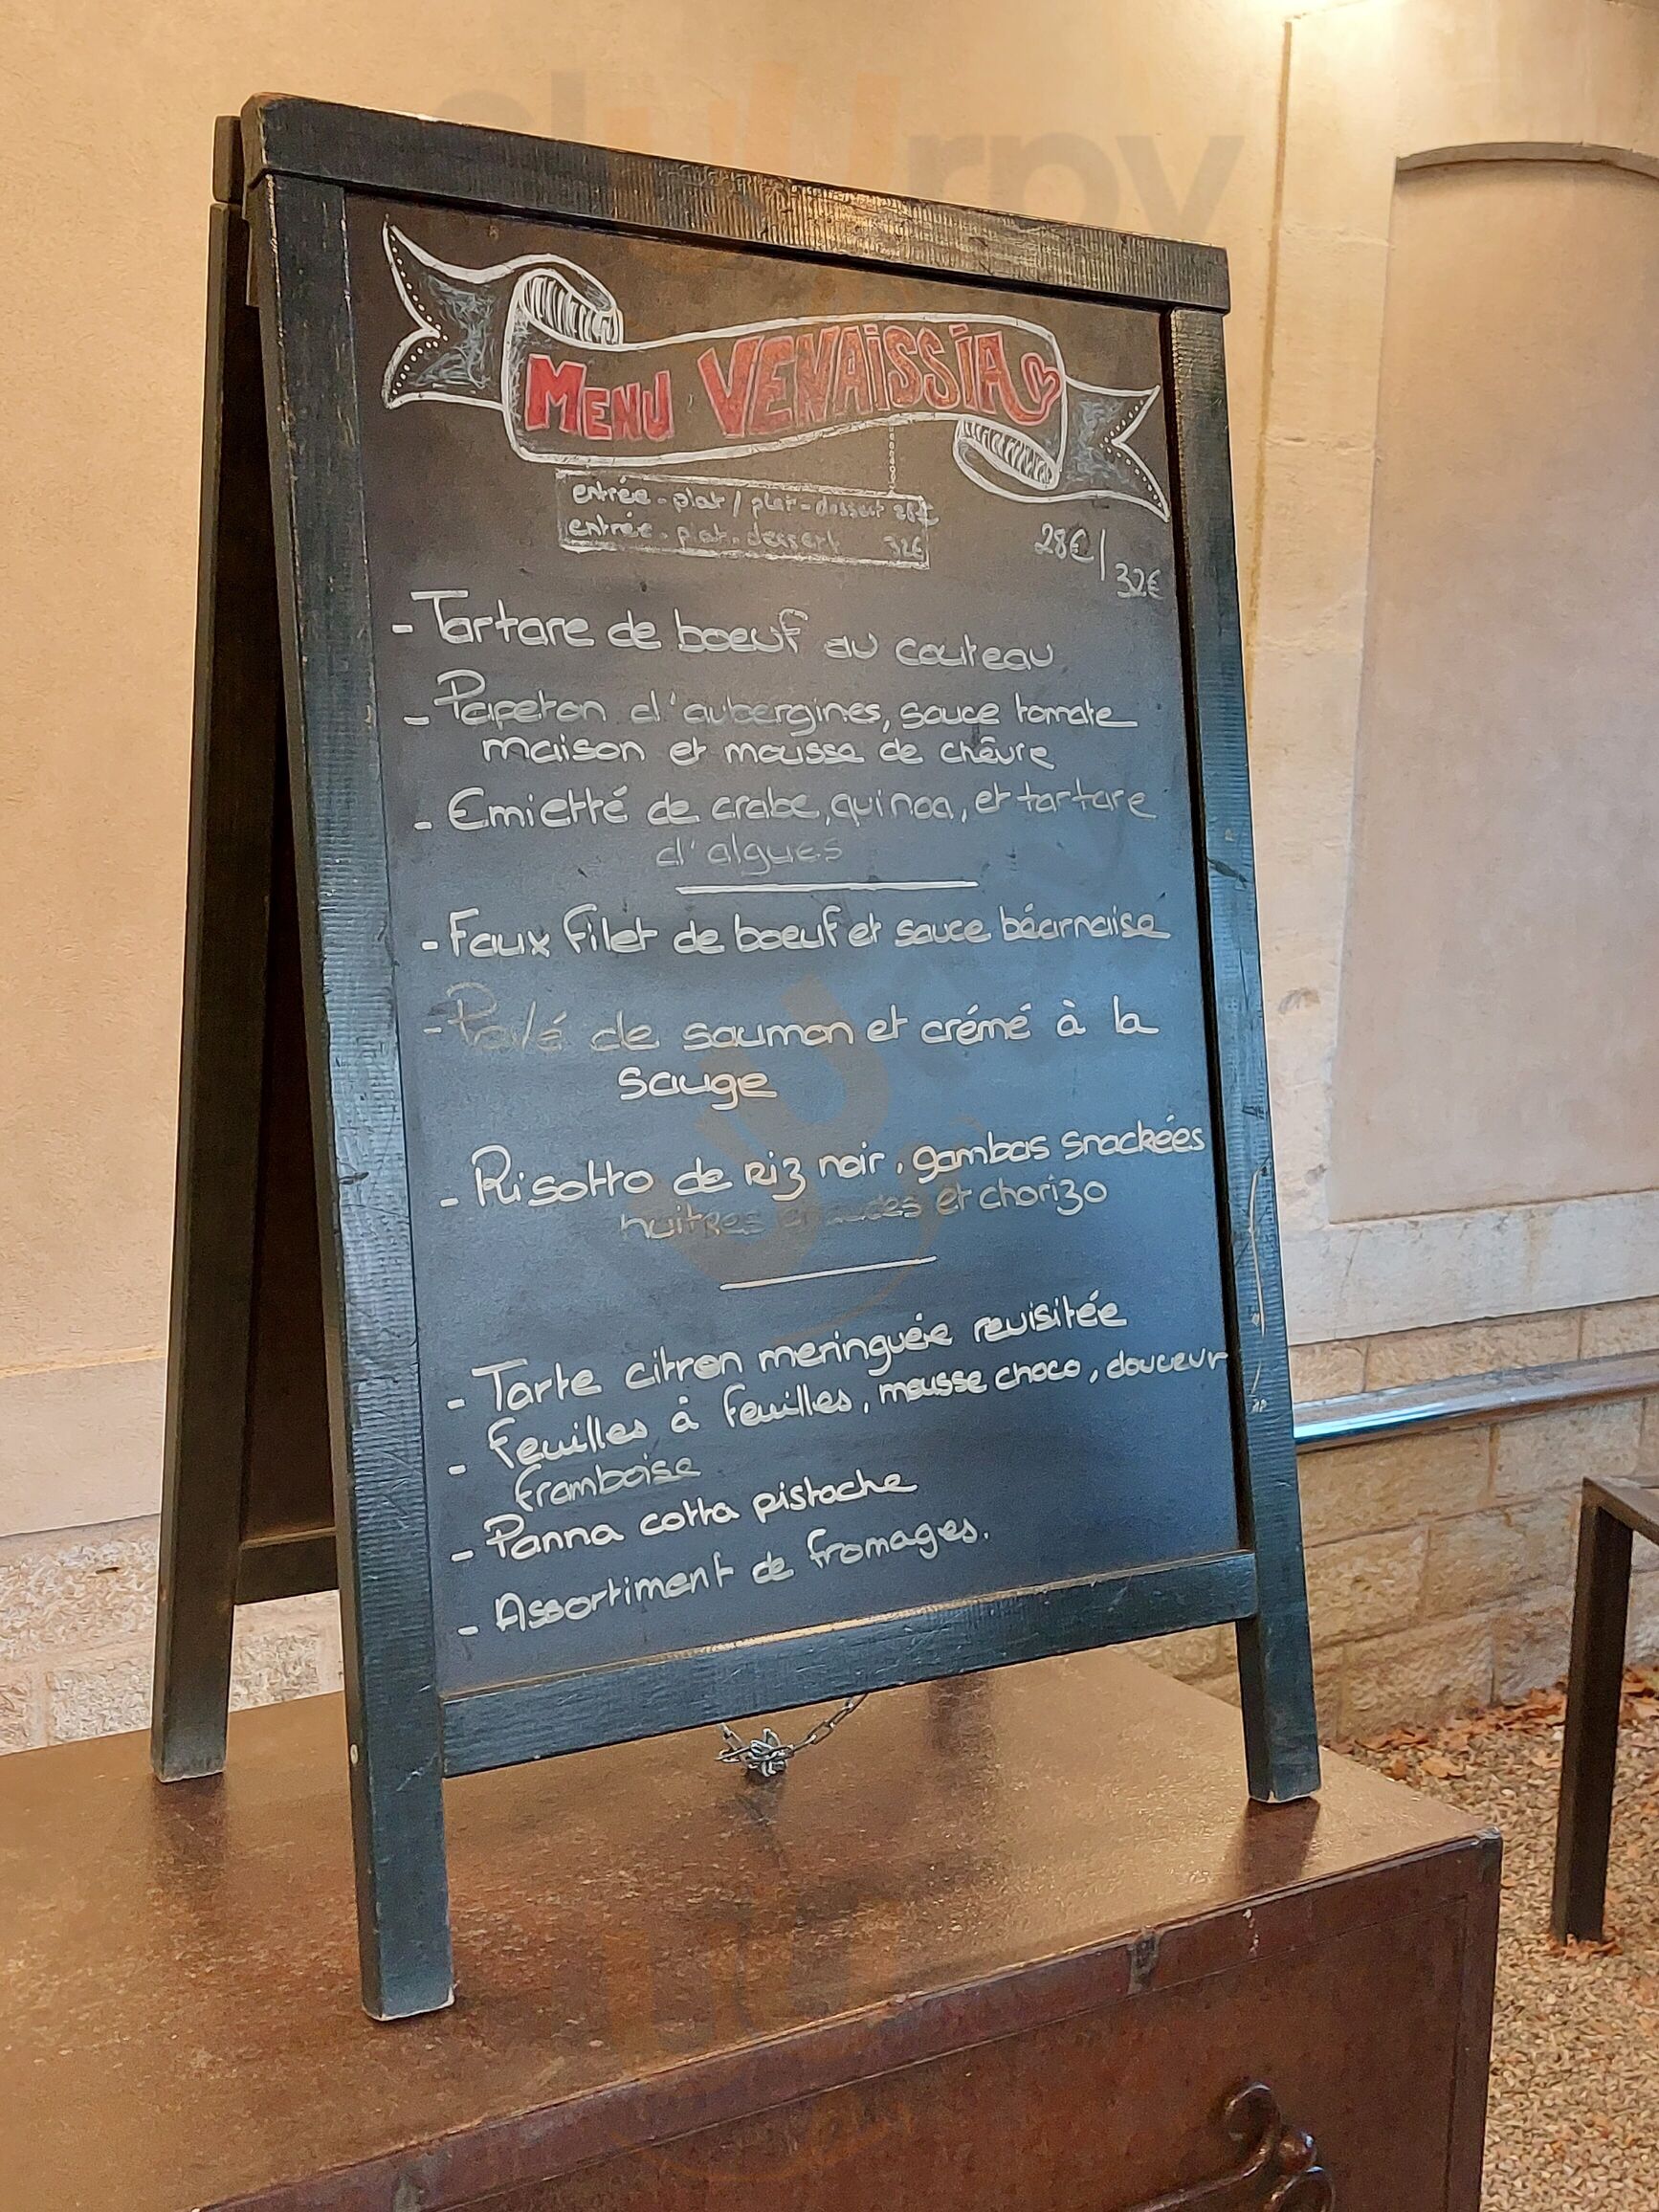 MENU VENAISSIA
entrée - plat / plat - dessert 28€
entrée - plat - dessert 32€
28€/
32€
- Tartare de boeuf au couteau
- Papeton d'aubergines, sauce tomate
maison et mousse de chêvre
- Emietté de crabe, quinoa, et tartare
d'algues
- Faux filet de boeuf et sauce béarnaise
- Pavé de saumon et crémé à la
sauge
- Risotto de Riz noir, gambas snackées
huitres chaudes et chorizo
- Tarte citron meringuée revisitée
- Feuilles à feuilles, mousse choco, douceur
framboise
- Panna cotta pistache
- Assortiment de fromages.